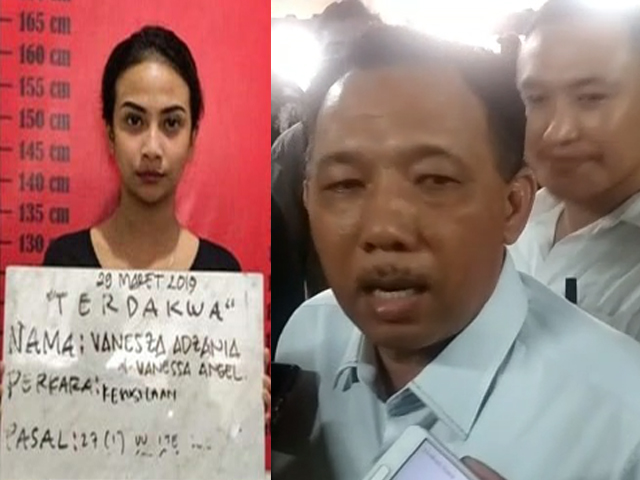 165 cm
160 cm
155 cm
150 cm
145 cm
140 cm
135 cm
130
29 MARET 2019
"TERDAKWA"
NAMA: VANESZA ADZANIA
VANESSA ANGEL.
PERKARA:
PASAL: 27 (1)